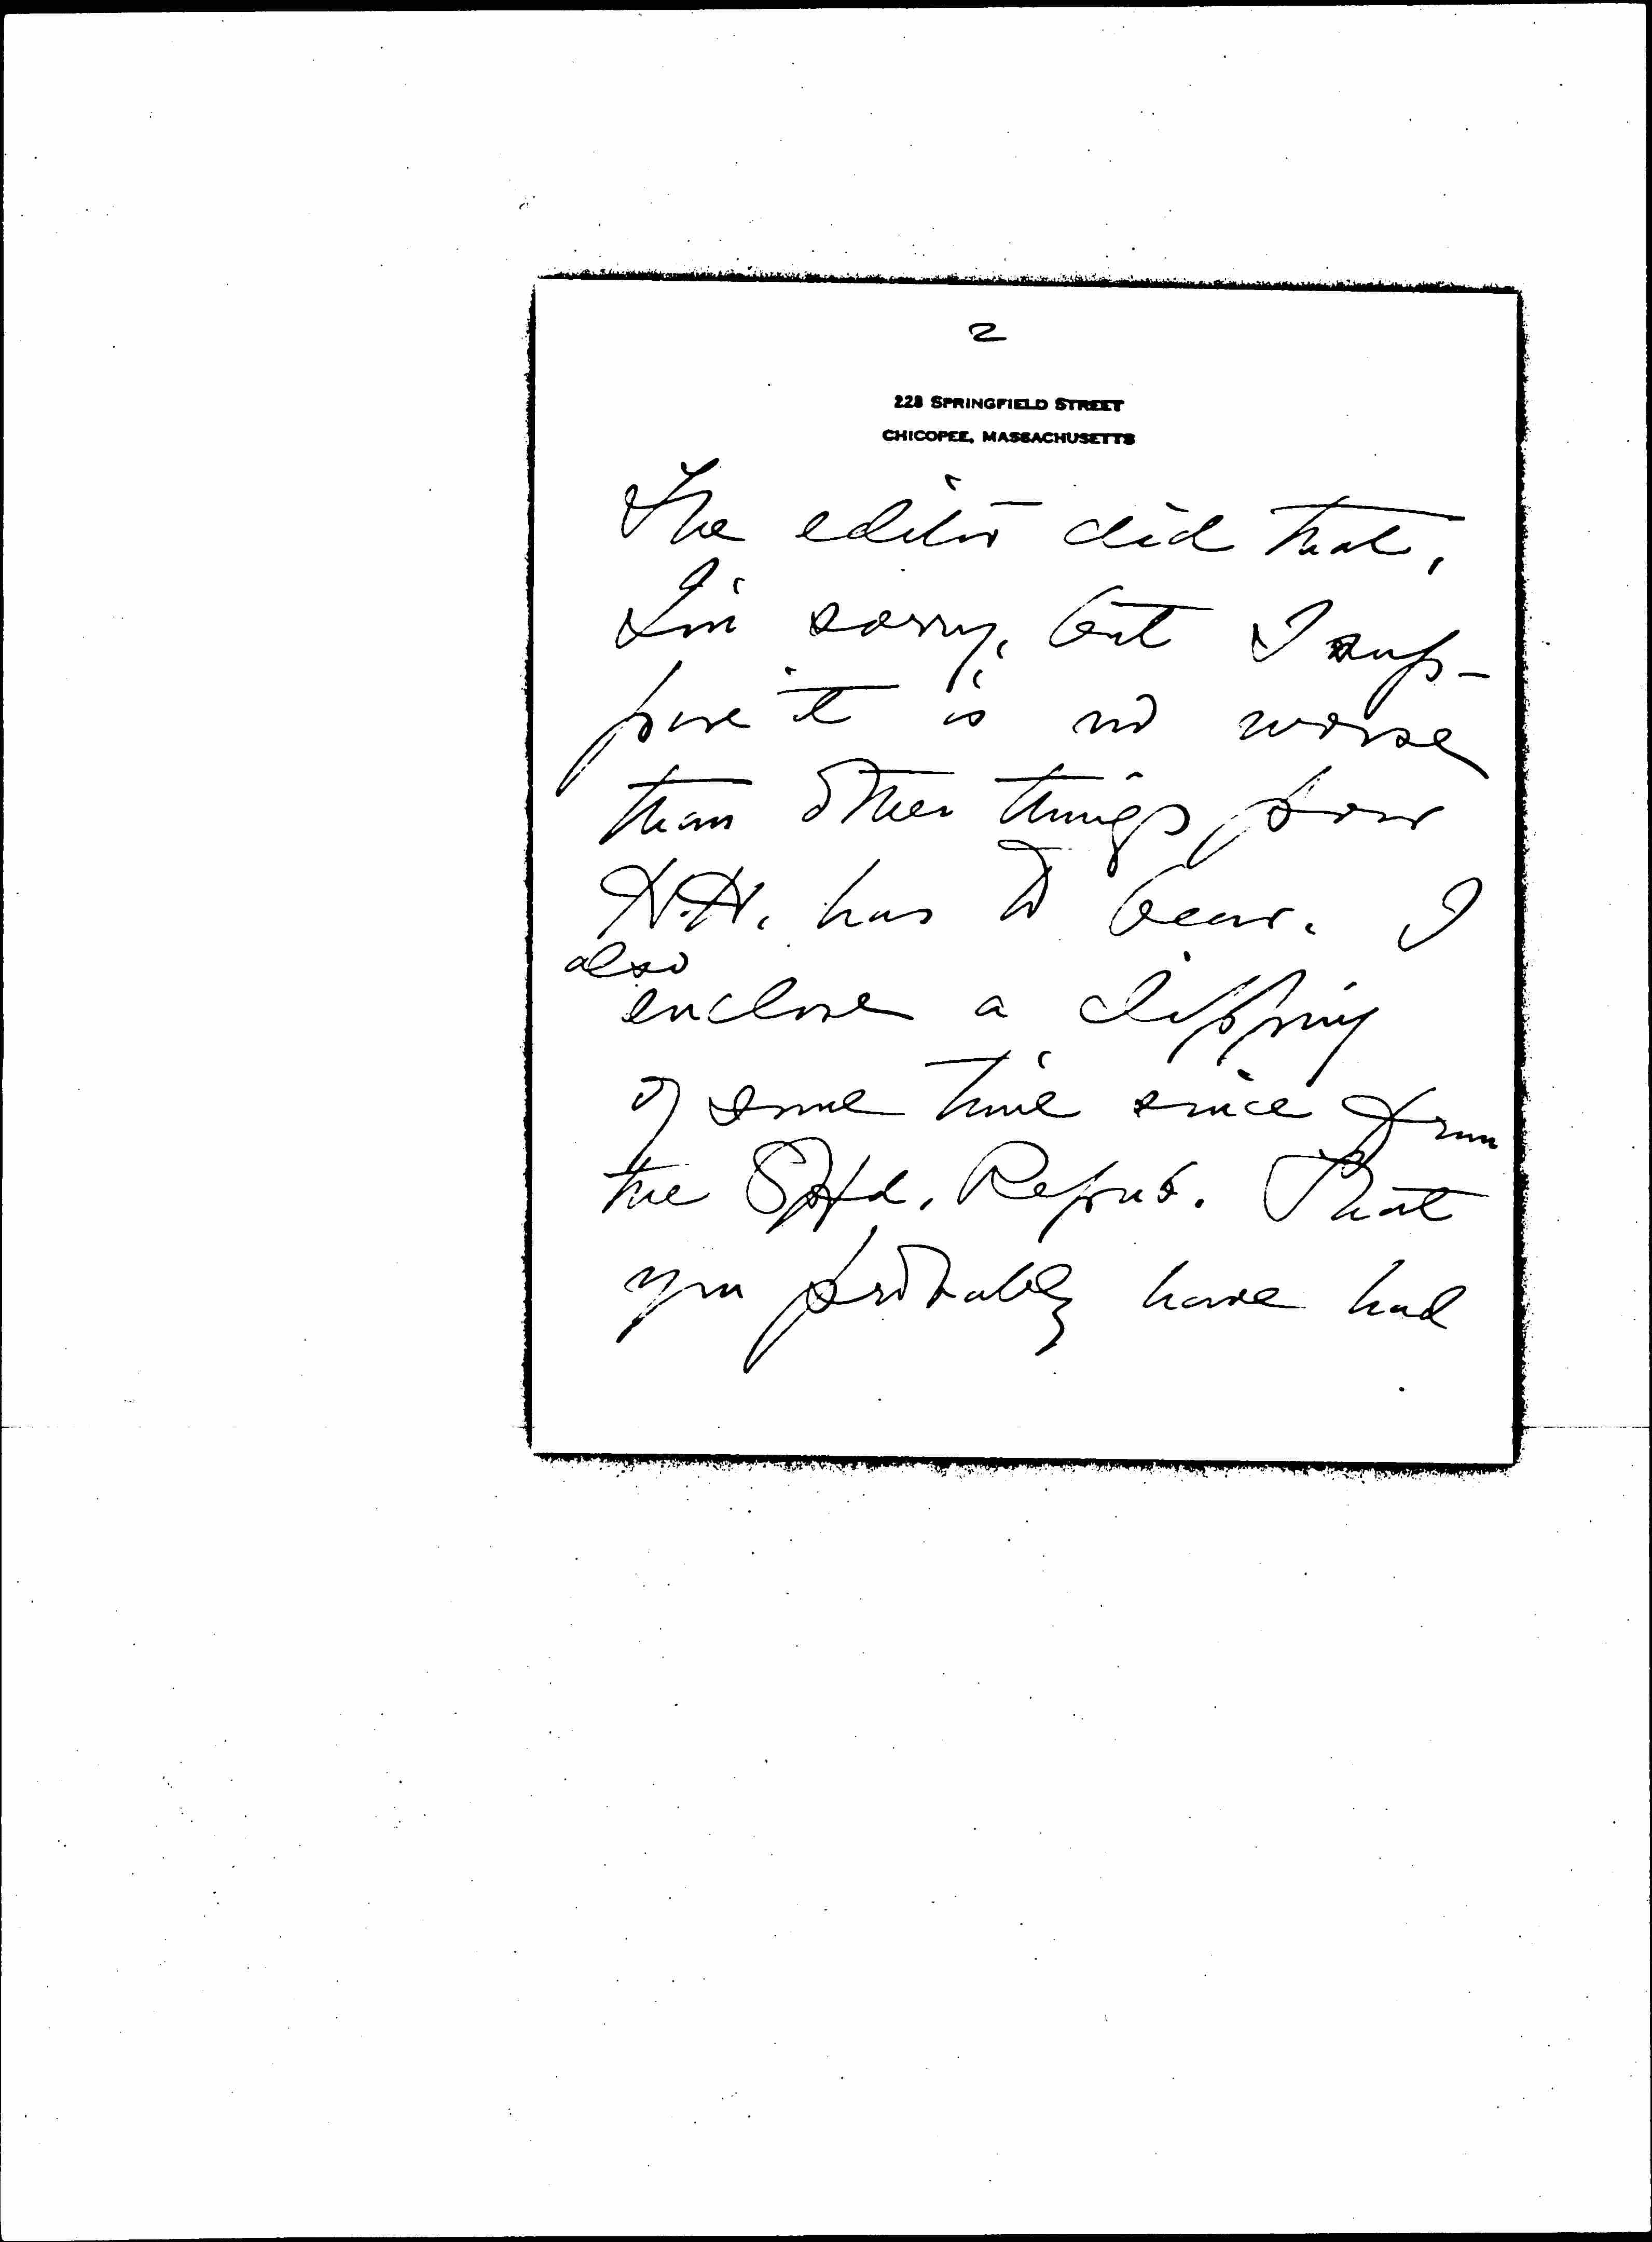 2
228 SPRINGFIELD STREET
CHICOPEE, MASSACHUSETTS
The editor did that,
I'm sorry, but I sup-
pose it is no worse
than other things poor
H.H. has to bear. I
also
enclose a clipping
of some time since from
the Spfd. Repub. That
you probably have had